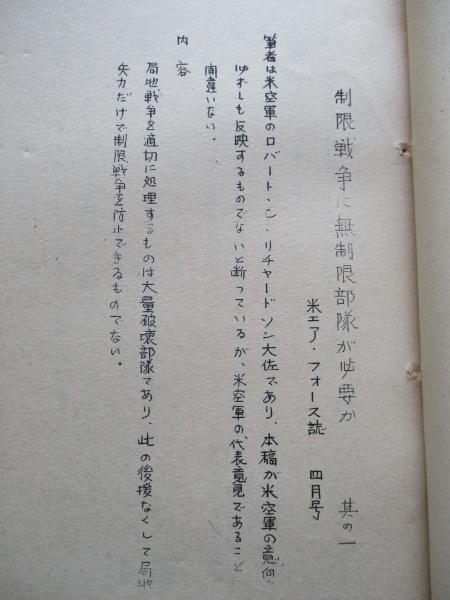 制限戦争に無制限部隊が必要か　其の一
米エア・フォース誌　四月号
筆者は米空軍のロバート・C・リチャードソン大佐であり、本稿が米空軍の意向
必ずしも反映するものでないと断っているが、米空軍の代表意見であること
間違いない。
内容
局地戦争を適切に処理するものは大量破壊部隊であり、此の後援なくして局地
兵力だけで制限戦争を防止できるものでない。